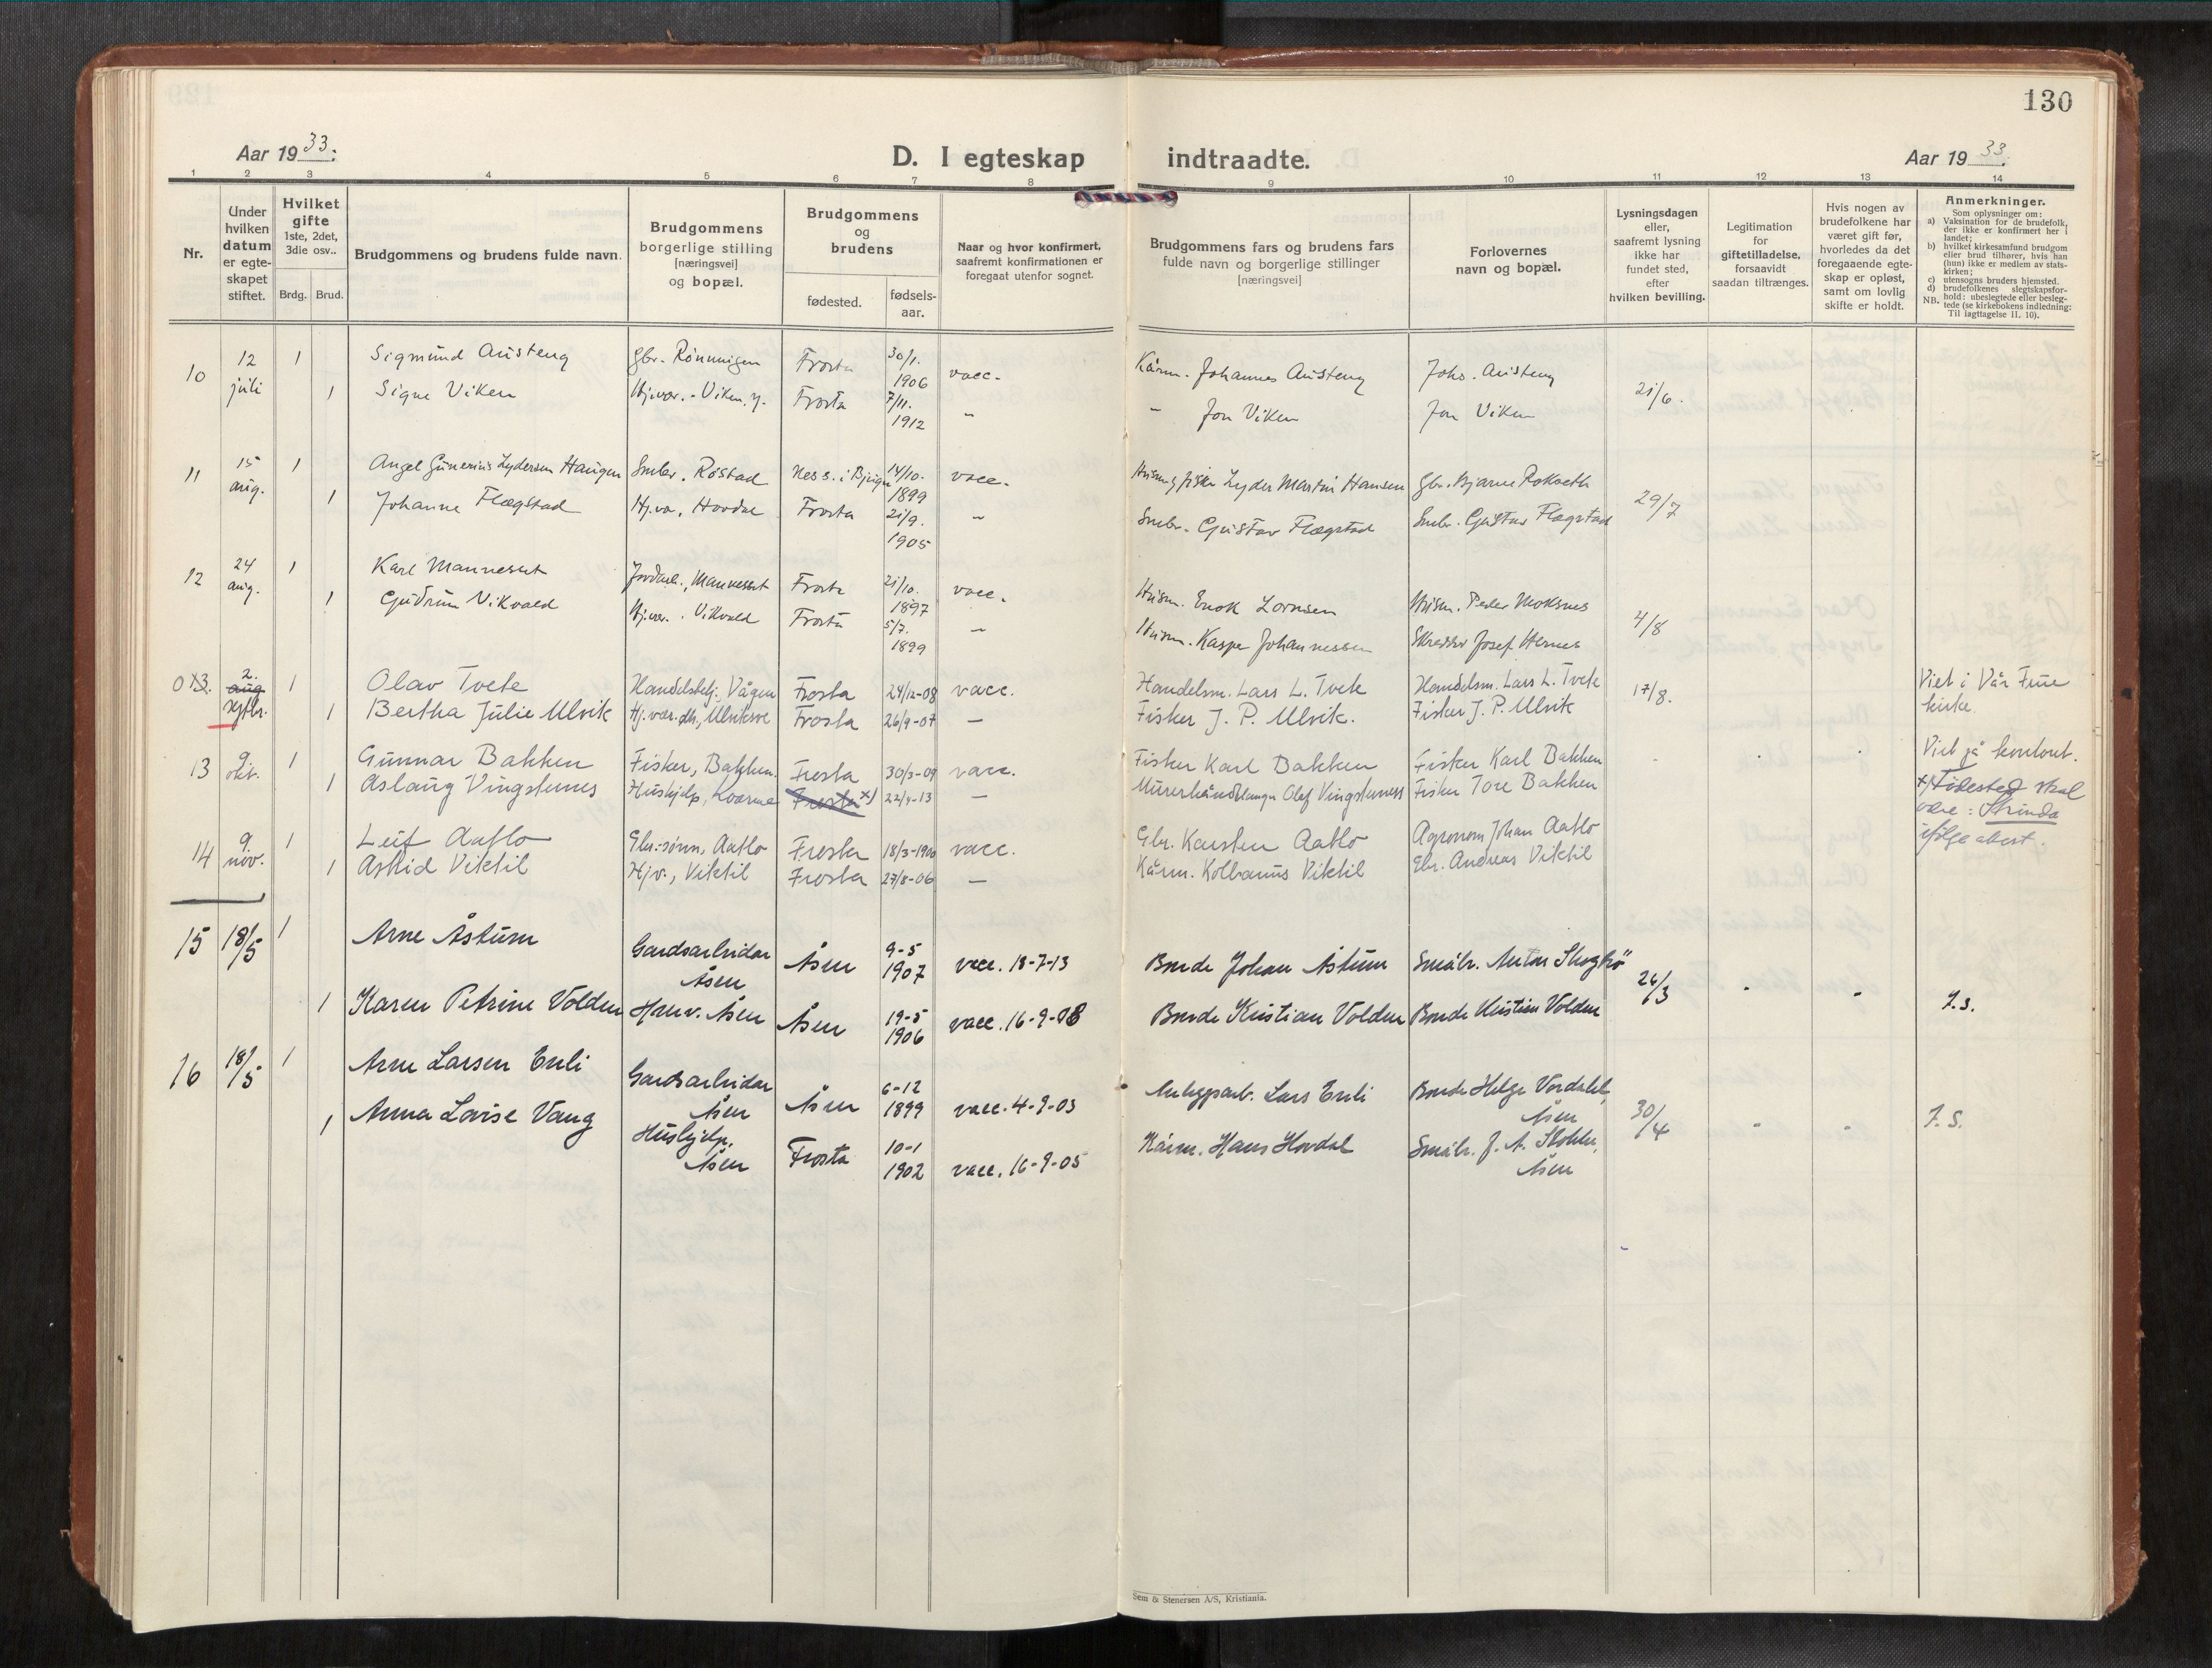 130
Aar 1933:
D. I egteskap indtraadte.
Aar 1933.
1 2 3 4 5 6 7 8 9 10 11 12 13 14
Nr.
Under hvilken datum er egte-skapet stiftet.
Hvilket gifte 1ste, 2det, 3die osv..
Brdg. Brud.
Brudgommens og brudens fulde navn.
Brudgommens borgerlige stilling [næringsvei] og bopæl.
Brudgommens og brudens
fødested.
fødsels-aar.
Naar og hvor konfirmert, saafremt konfirmationen er foregaat utenfor sognet.
Brudgommens fars og brudens fars fulde navn og borgerlige stillinger [næringsvei]
Forlovernes navn og bopæl.
Lysningsdagen eller, saafremt lysning ikke har fundet sted, efter hvilken bevilling.
Legitimation for giftetilladelse, forsaavidt saadan tiltrænges.
Hvis nogen av brudefolkene har været gift før, hvorledes da det foregaaende egte-skap er opløst, samt om lovlig skifte er holdt.
Anmerkninger.
Som oplysninger om:
a) Vaksination for de brudefolk, der ikke er konfirmert her i landet;
b) hvilket kirkesamfund brudgom eller brud tilhører, hvis han (hun) ikke er medlem av stats-kirken;
c) utensogns bruders hjemsted.
d) brudefolkenes slegtskapsfor-hold: ubeslegtede eller besleg-tede (se kirkebokens indledning: Til iagttagelse II. 10).
NB.
10 12 juli 1 Sigmund Austeng Gbr. Rønningen Frosta 30/1. 1906 vacc. Kårm. Johannes Austeng Johs. Austeng 21/6.
1 Signe Viken Hj.vær. - Viken, y. Frosta 7/11. 1912 " - Jon Viken Jon Viken
11 15 aug. 1 Angel Gunerius Lydersen Haugen Smbr. Røstad Nes s. i Bjugn 14/10. 1899 vacc. Husm. og fisker Lyder Martin Hansen Gbr. Bjarne Rokseth 29/7
1 Johanne Flægstad Hj.vær, Hovdal Frosta 21/9. 1905 " Smbr. Gustav Flægstad Smbr. Gustav Flægstad
12 24 aug. 1 Karl Mannesset Jordarb., Mannesset Frosta 21/10. 1897 vacc. Husm. Enok Lornsen Husm. Peder Moksnes 4/8
1 Gudrun Vikvald Hj.vær. Vikvald Frosta 5/7. 1899 " Husm. Kasper Johannessen Skredder Josef Hernes
0 13. 2. aug septbr. 1 Olav Tvete Handelsbetj. Vågen Frosta 24/12-08 vacc. Handelsm. Lars L. Tvete Handelsm. Lars L. Tvete 17/8. Viet i Vår Frue kirke.
1 Bertha Julie Ulvik Hj.vær. dtr., Ulvik Frosta 26/9-07 — Fisker J. P. Ulvik. Fisker J. P. Ulvik
13 9 okt. 1 Gunnar Bakken Fisker, Bakken. Frosta 30/3-09 vacc. Fisker Karl Bakken Fisker Karl Bakken Viet på kontoret.
1 Aslaug Vingsternes Huskjelp, Kvarme Frosta x) 22/4-13 — Murerhåndlanger Olaf Vingsternes Fisker Tore Bakken x) Fødested skal være: Strinda ifølge attest.
14 9. nov. 1 Leif Aatlo Gbr.sønn, Aatlo Frosta 18/3-1900 vacc. Gbr. Karsten Aatlo Agronom Johan Aatlo
1 Astrid Viktil Hjv., Viktil Frosta 27/8-06 — Kårm. Kolbanus Viktil Gbr. Andreas Viktil
15 18/5 1 Arne Åstum Gardsarbeidar Åsen Åsen 9-5 1907 vacc. 18-7-13 Bonde Johan Åstum Småbr. Anton Skogbø 26/3
1 Karen Petrine Volden Hm.v. Åsen Åsen 19-5 1906 vacc. 16-9-08 Bonde Kristian Volden Bonde Kristian Volden I.s.
16 18/5 1 Arne Larsen Erli Gardsarbeidar Åsen Åsen 6-12 1899 vacc. 4-9-03 Anleggsarb. Lars Erli Bonde Helge Vordahl, Åsen 30/4 I.S.
1 Anna Lovise Vang Huskjelp, Åsen Frosta 10-1 1902 vacc. 16-9-05 Kårm. Hans Hovdal Småbr. J. A. Åsen
Sem & Stenersen A/S, Kristiania.